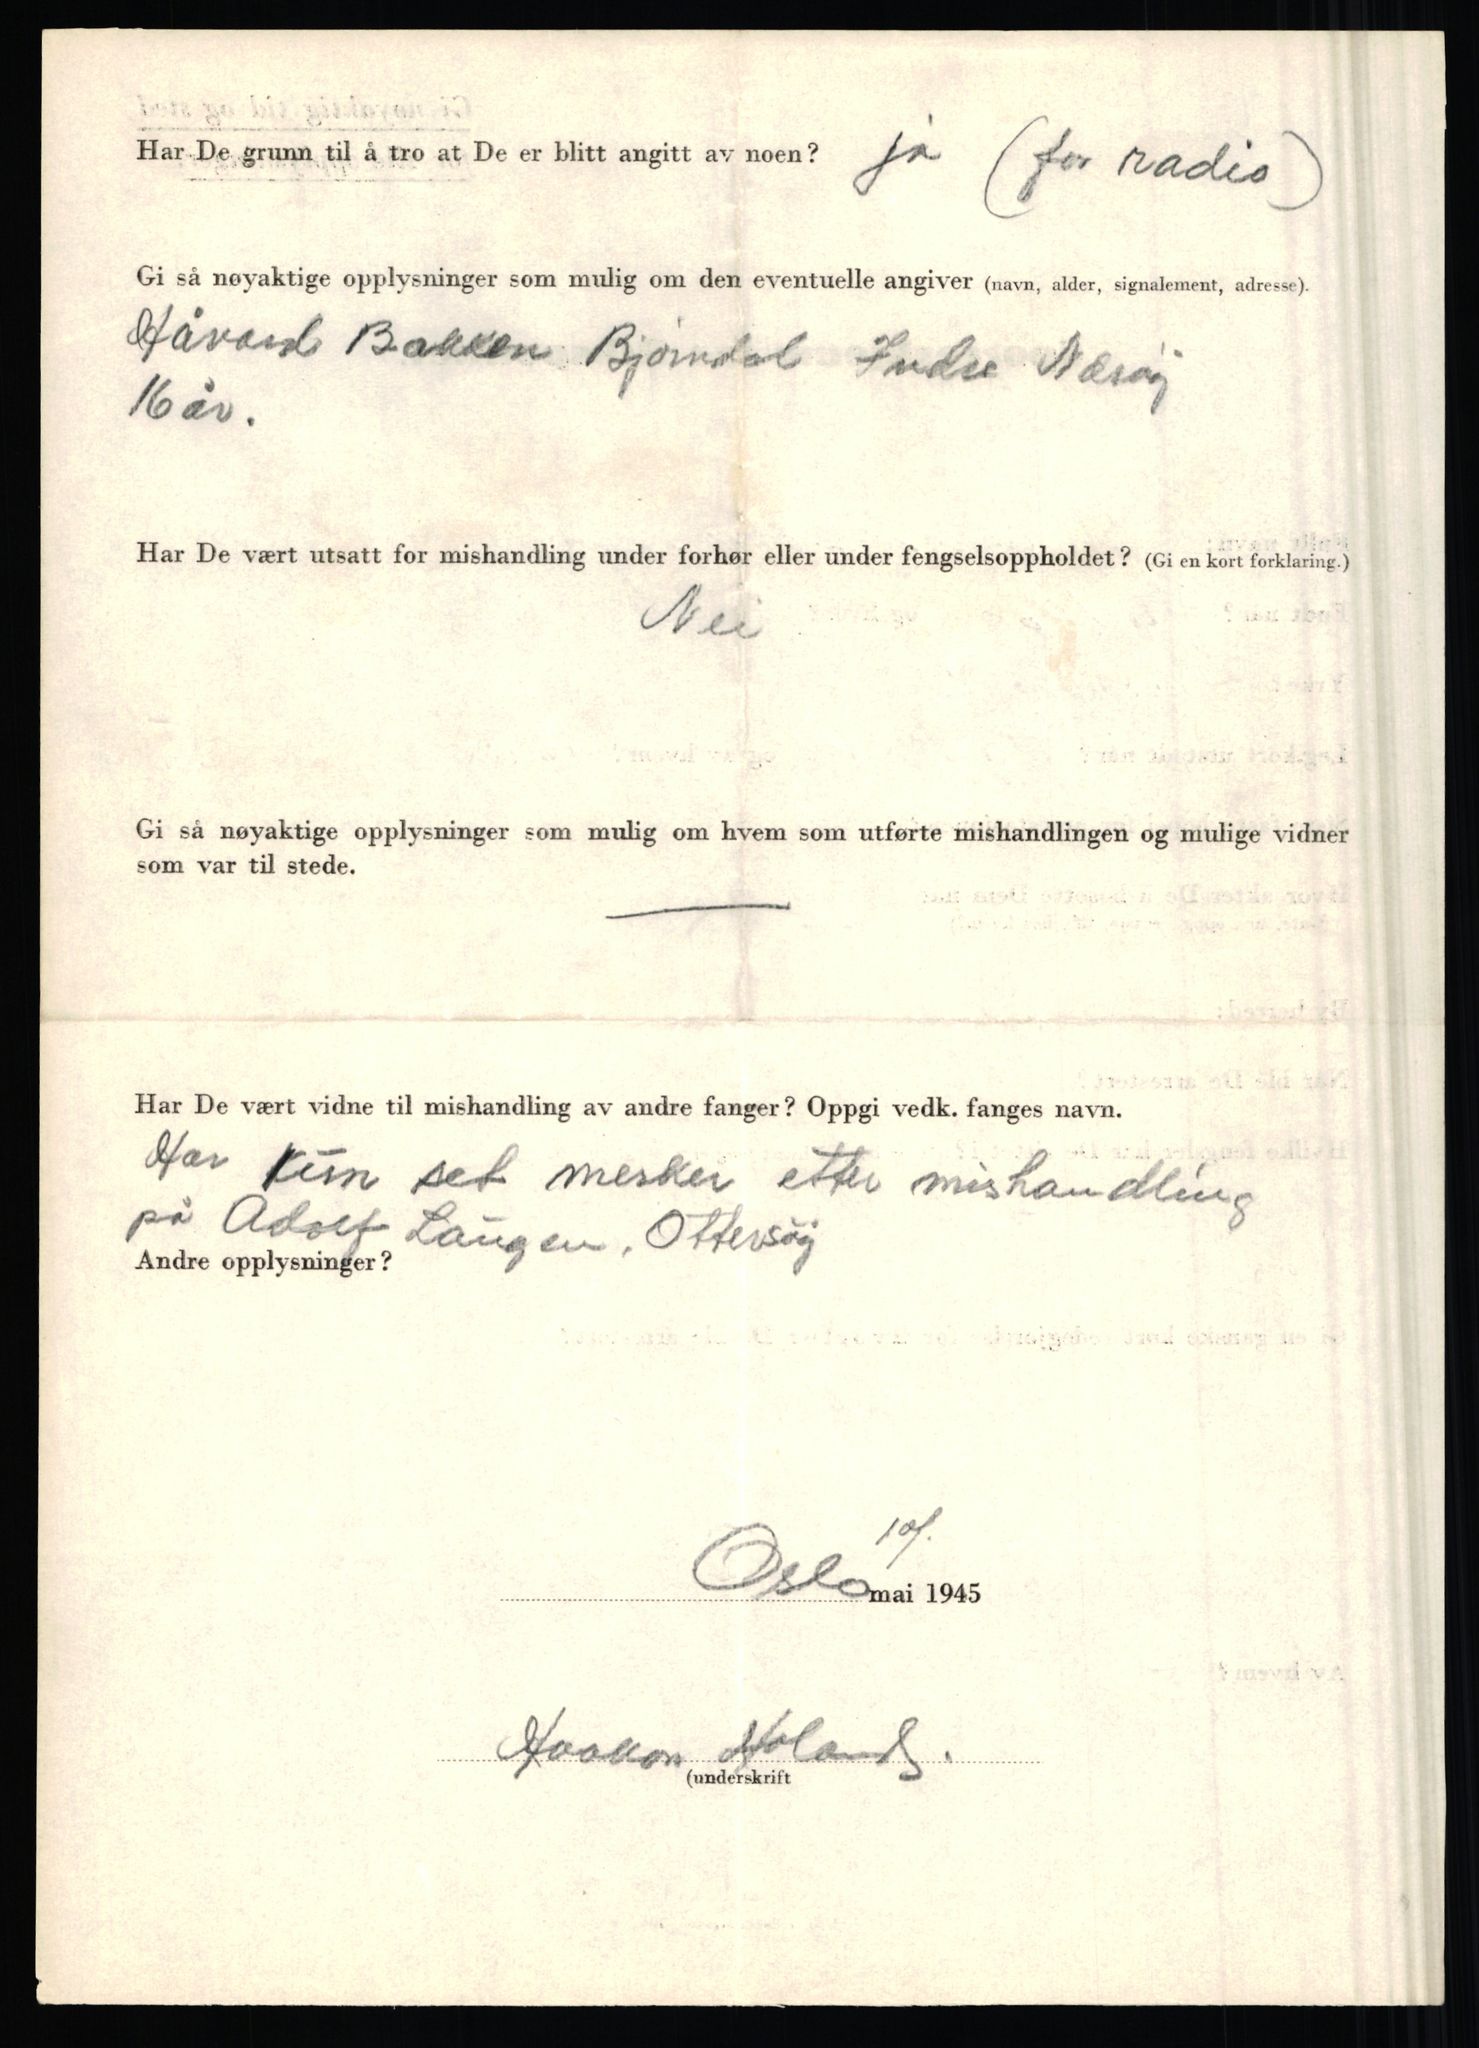 Har De grunn til å tro at De er blitt angitt av noen? ja (for radio)
Gi så nøyaktige opplysninger som mulig om den eventuelle angiver (navn, alder, signalement, adresse).
Håvard Bakken Bjørndal Indre Nærøy
16 år.
Har De vært utsatt for mishandling under forhør eller under fengselsoppholdet? (Gi en kort forklaring.)
Nei
Gi så nøyaktige opplysninger som mulig om hvem som utførte mishandlingen og mulige vidner
som var til stede.
Har De vært vidne til mishandling av andre fanger? Oppgi vedk. fanges navn.
Har kun set merker etter mishandling
på Adolf Laugen, Ottersøy
Andre opplysninger?
Oslo mai 1945
Haakon Holand.
(underskrift